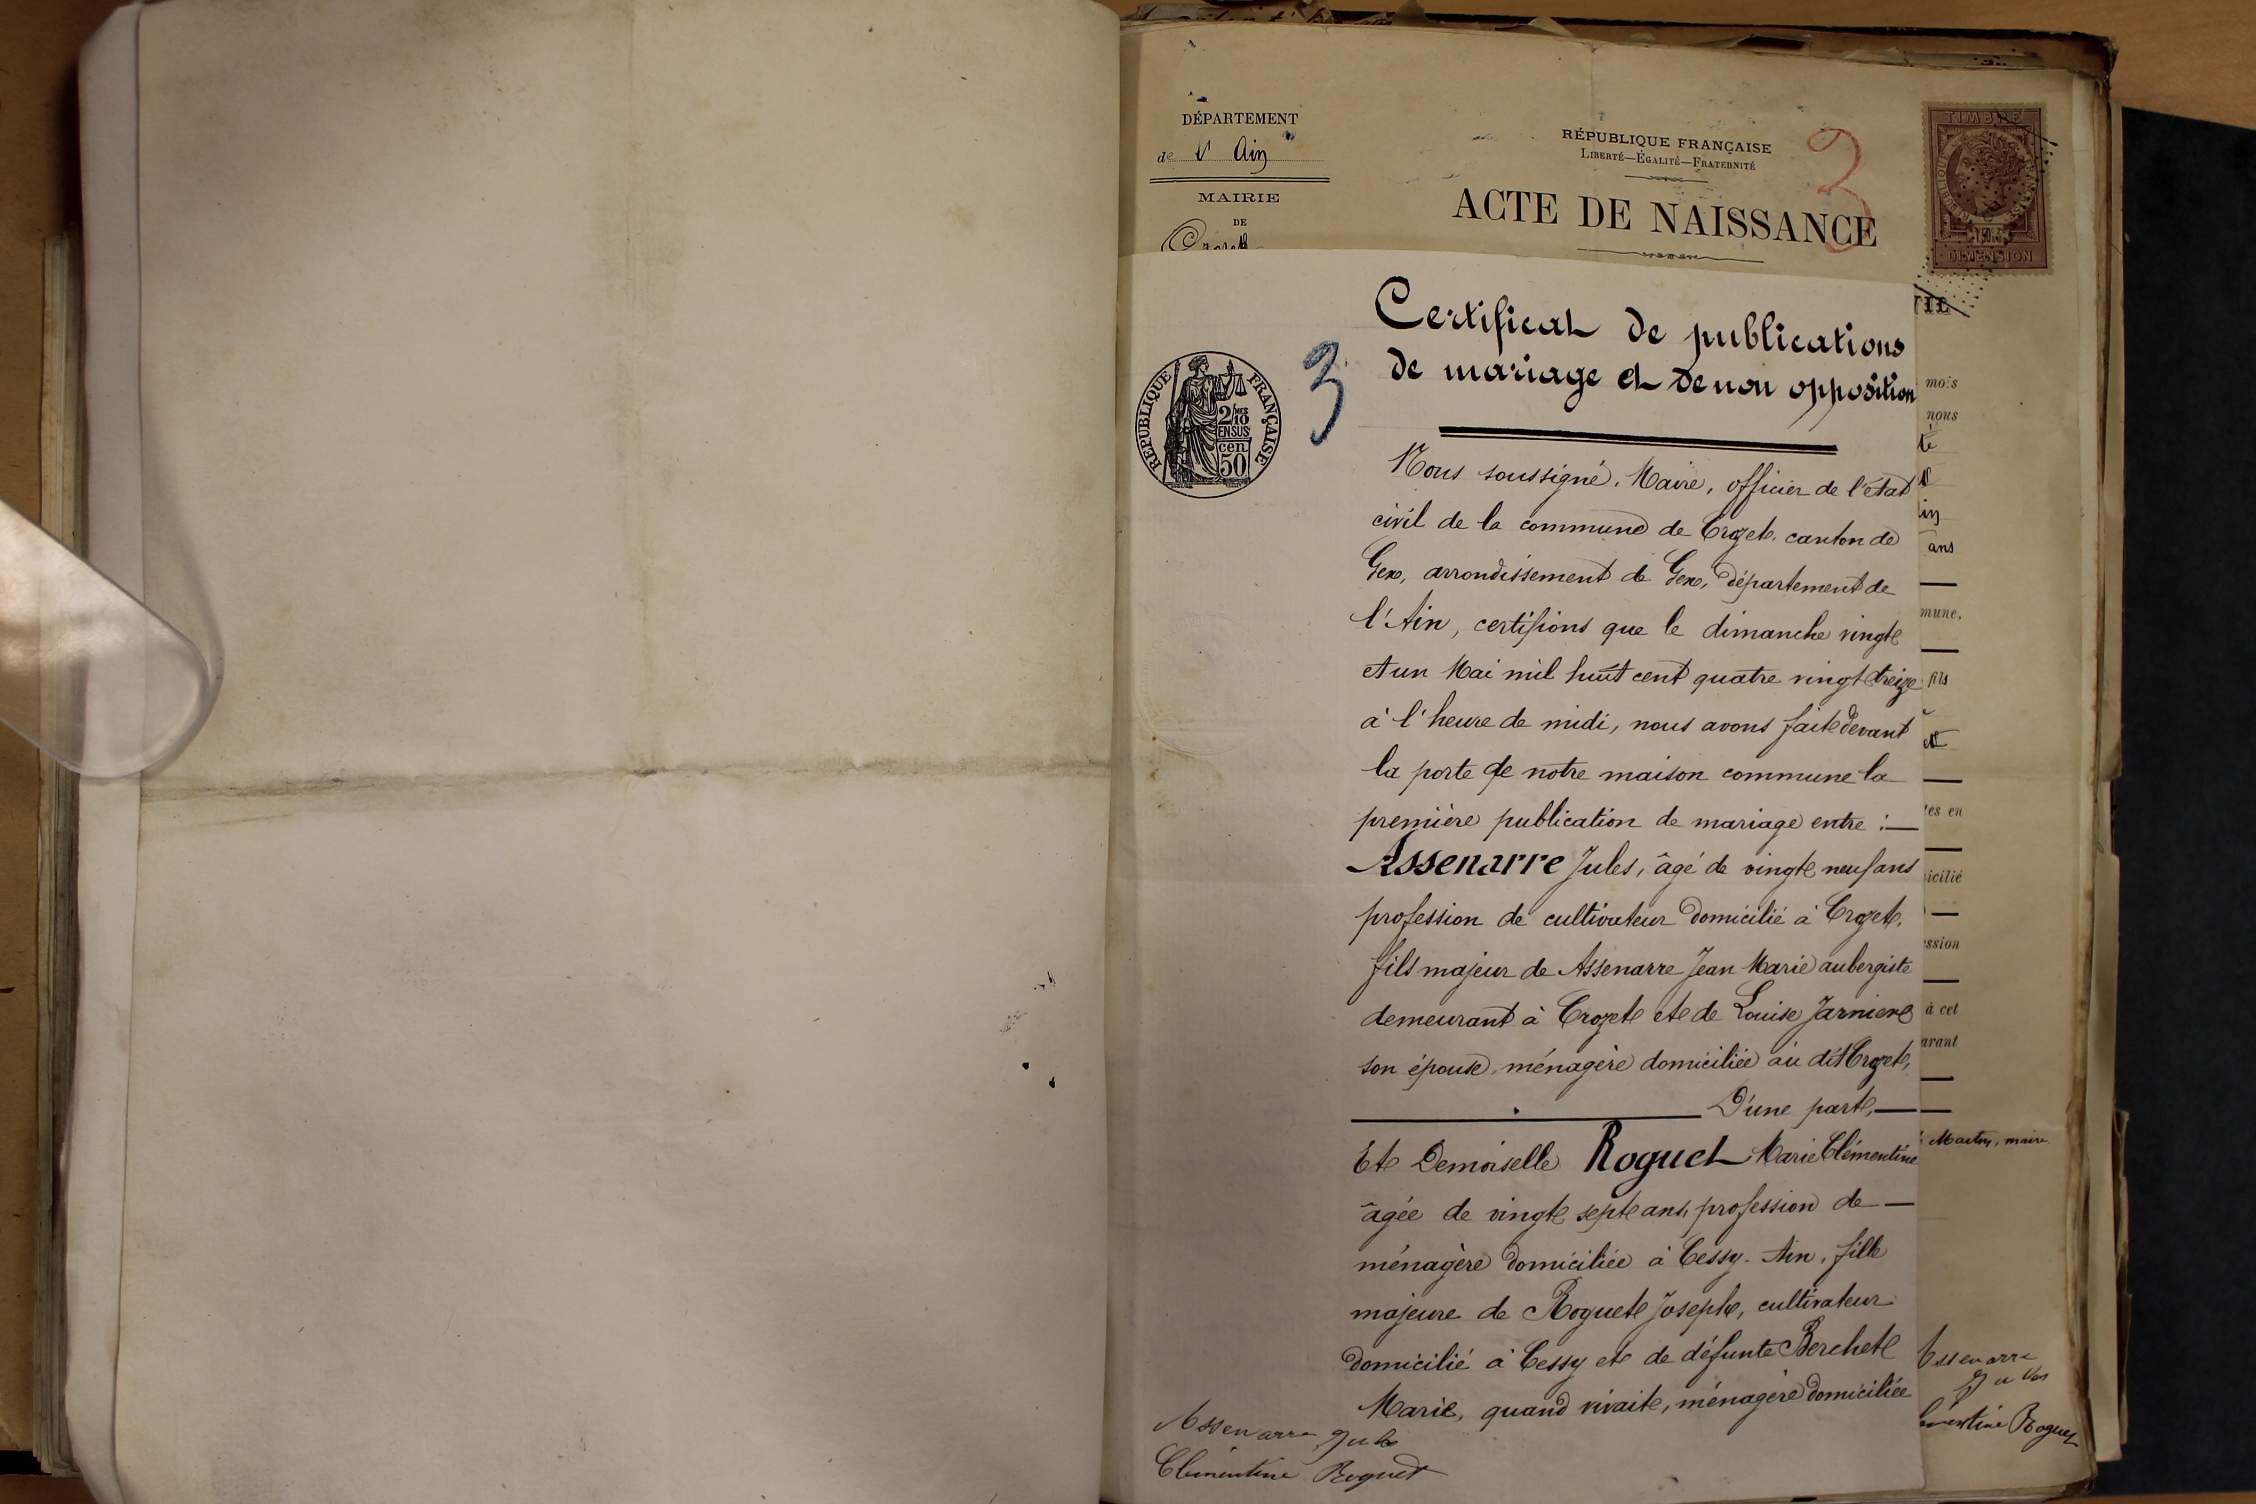 DÉPARTEMENT
de l'Ain
MAIRIE
DE
RÉPUBLIQUE FRANÇAISE
LIBERTÉ—ÉGALITÉ—FRATERNITÉ
ACTE DE NAISSANCE
3
TIMBRE
DIMENSION
Certificat de publications
de mariage et de non opposition
3
RÉPUBLIQUE FRANÇAISE
2/10 MES
EN SUS
50 cen
Nous soussigné, Maire, officier de l'état
civil de la commune de Crozet, canton de
Gex, arrondissement de Gex, département de
l'Ain, certifions que le dimanche vingt
et un Mai mil huit cent quatre vingt treize
à l'heure de midi, nous avons fait devant
la porte de notre maison commune la
première publication de mariage entre :
Assenarre Jules, âgé de vingt neuf ans
profession de cultivateur domicilié à Crozet,
fils majeur de Assenarre Jean Marie aubergiste
demeurant à Crozet et de Louise Jarniere
son épouse, ménagère domiciliée au dit Crozet,
D'une part,
Et Demoiselle Roguet Marie Clémentine
âgée de vingt sept ans, profession de
ménagère domiciliée à Cessy - Ain, fille
majeure de Roguet Joseph, cultivateur
domicilié à Cessy et de défunte Berchet
Marie, quand vivait, ménagère domiciliée
Assenarre Jules
Clémentine Roguet
mois
nous
ans
mune,
fils
et
es en
icilié
ession
à cet
arant
maire
Assenarre
Jules
mentine Roguet